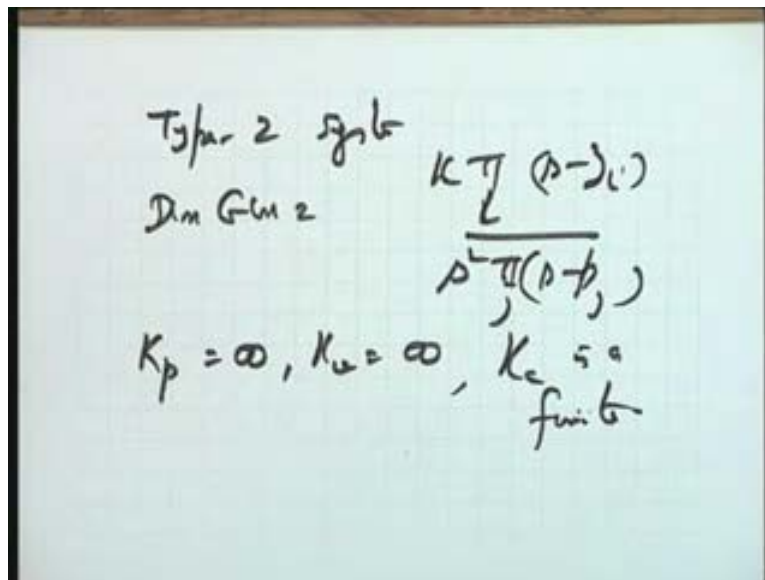 Type-2 system
D(s) G(s) = K ∏i (s-zi)
s² ∏j (s-pj)
Kp = ∞, Kv = ∞, Ka is a
finite